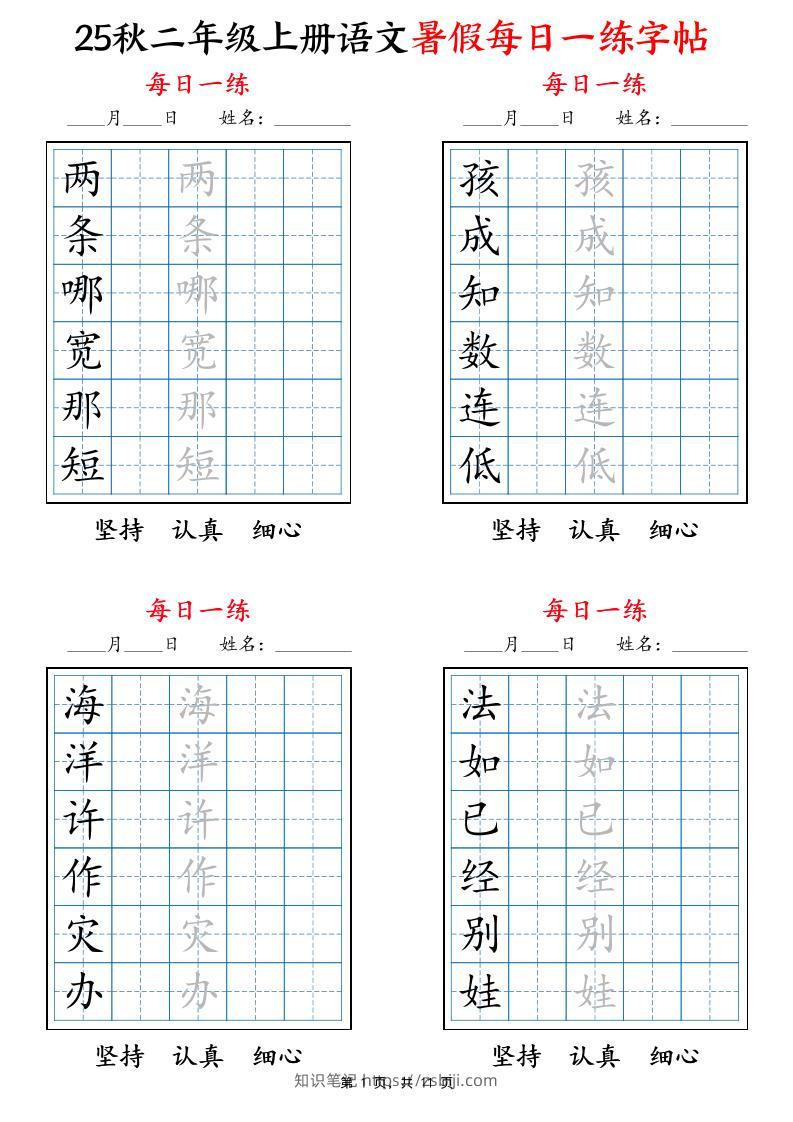 25秋二年级上册语文暑假每日一练字帖
每日一练
____月____日 姓名：________
两 两
条 条
哪 哪
宽 宽
那 那
短 短
坚持 认真 细心
每日一练
____月____日 姓名：________
孩 孩
成 成
知 知
数 数
连 连
低 低
坚持 认真 细心
每日一练
____月____日 姓名：________
海 海
洋 洋
许 许
作 作
灾 灾
办 办
坚持 认真 细心
每日一练
____月____日 姓名：________
法 法
如 如
已 已
经 经
别 别
娃 娃
坚持 认真 细心
知识笔记 https://zsbiji.com
第 1 页，共 11 页